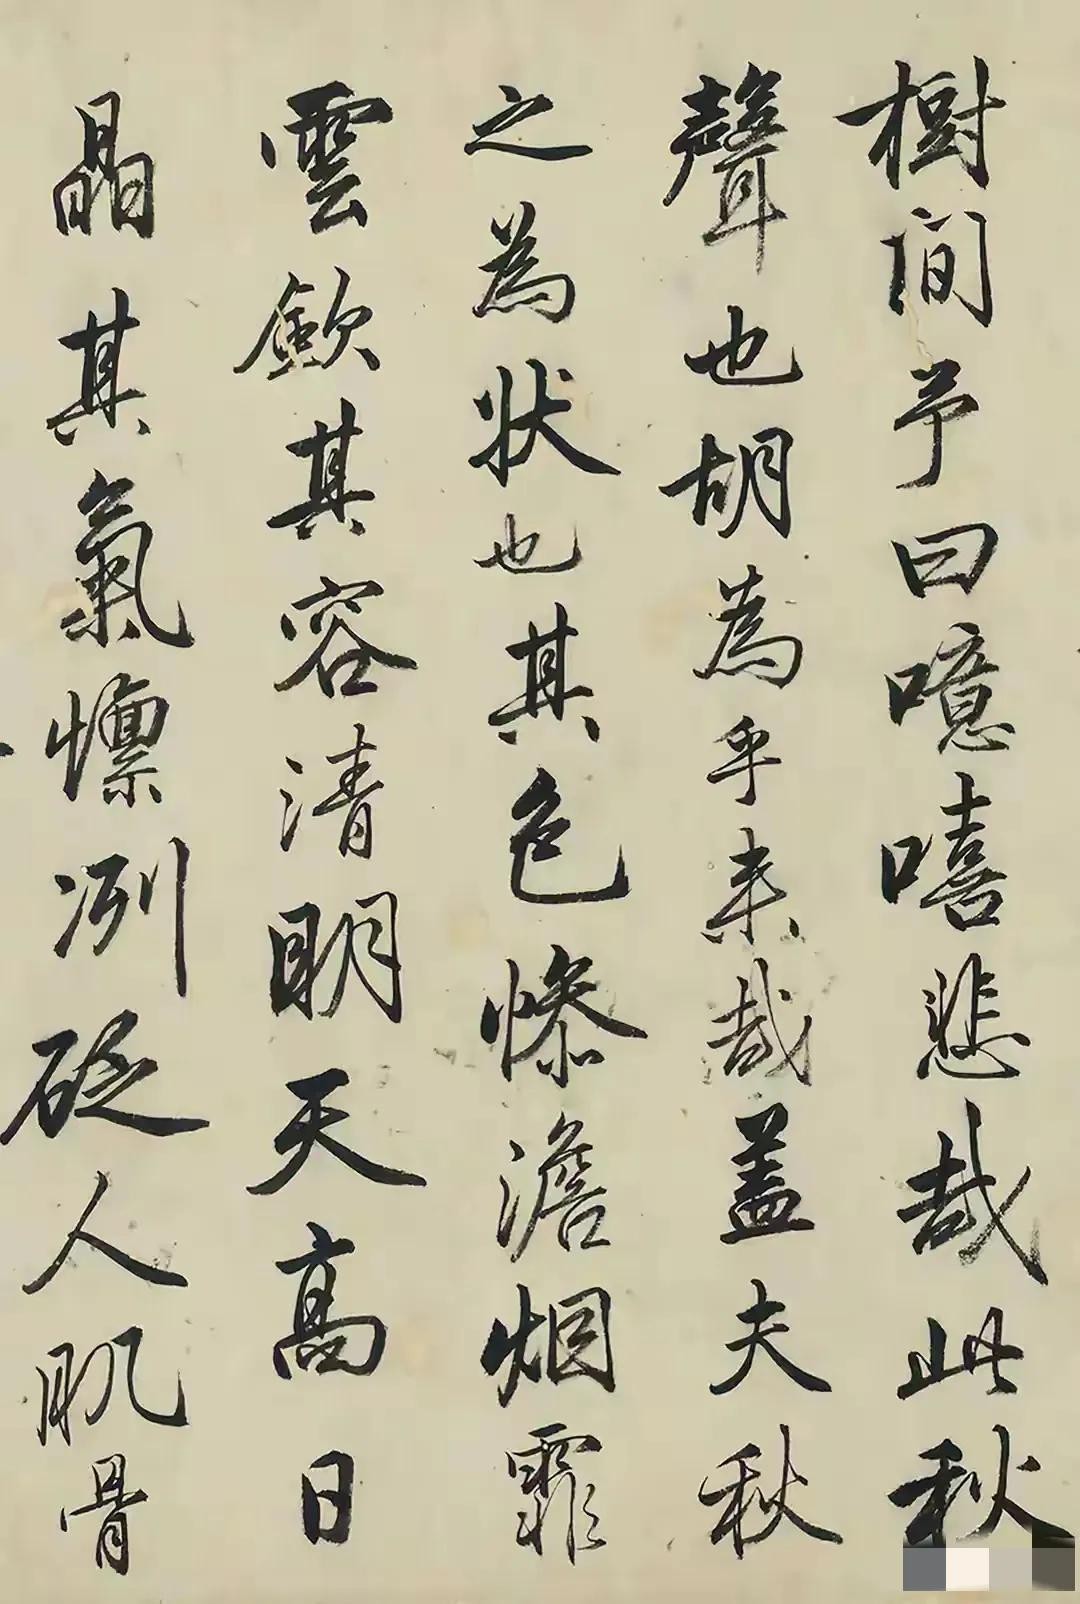 樹间予曰噫嘻悲哉此秋
聲也胡為乎来哉盖夫秋
之為状也其色惨澹烟霏
雲歛其容清明天高日
晶其氣慄冽砭人肌骨